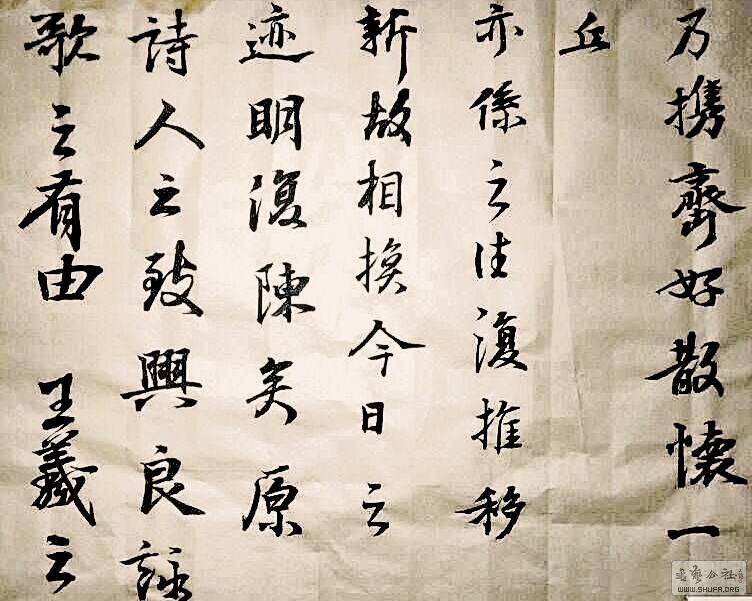 乃携齊好散懷一
丘
亦係之往復推移
新故相換今日之
迹明復陳矣原
詩人之致興良詠
歌之有由 王羲之
WWW.SHUFA.ORG